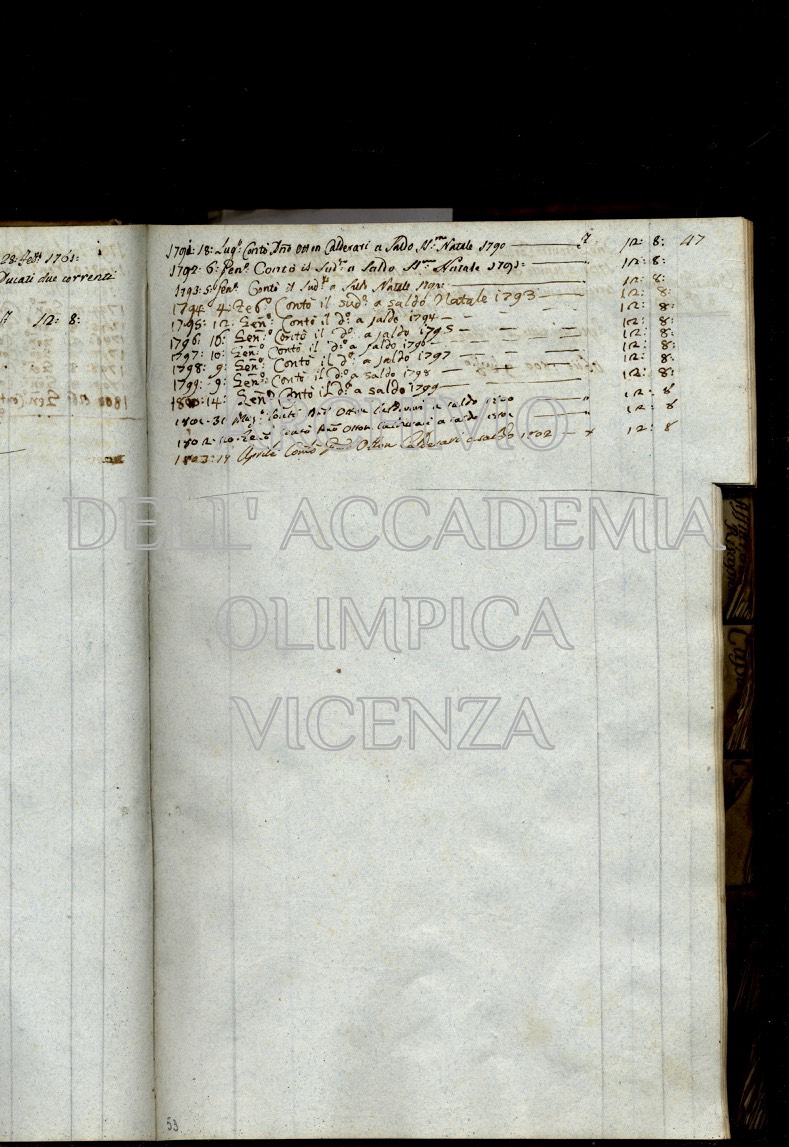 28 Feb. 1761:
Ducati due correnti
12: 8:
47
1791: 18: Lug.º Contò Otton Calderari a Saldo S.mo Natale 1790 — 12: 8:
1792: 6: Gen.º Contò il Sud.º a Saldo S.mo Natale 1791: — 12: 8:
1793: 5: Gen.º Contò il Sud.º a Natale — 12: 8:
1794: 4: Feb.º Contò il sud.º a saldo Natale 1793 — 12: 8:
1795: 12: Gen.º Contò il D.º a saldo 1794 — 12: 8:
1796: 16: Gen.º Contò il D.º a saldo 1795 — 12: 8:
1797: 10: Gen.º Contò il D.º a saldo 1796 — 12: 8:
1798: 9: Gen.º Contò il D.º a saldo 1797 — 12: 8:
1799: 9: Gen.º Contò il D.º a saldo 1798 — 12: 8:
1800: 14: Gen.º Contò il D.º a saldo 1799 — 12: 8:
1801: 31 Contò Otton Calderari a saldo — 12: 8
1802: 10: Gen.º Contò Otton Calderari a saldo 1801 — 12: 8
1803: 19 Aprile Contò Otton Calderari a saldo 1802 — 12: 8
ARCHIVIO
DELL' ACCADEMIA
OLIMPICA
VICENZA
53